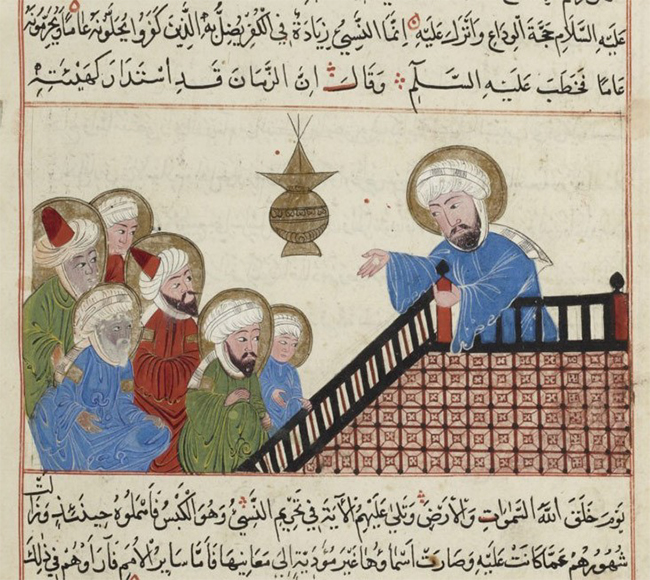 عليه السلام حجة الوداع وانزل عليه انما النسيء زيادة في الكفر يضل به الذين كفروا يحلونه عاما ويحرمونه
عاما فخطب عليه السلم وقال ان الزمان قد استدار كهيئته
يوم خلق الله السموات والارض وتلى عليهم الآية في تحريم النسيء وهو الكبس فاهملوه حينئذ وزالت
شهورهم عما كانت عليه وصارت اسماوها غير مودية الى معانيها فاما ساير الامم فآراوهم في ذلك